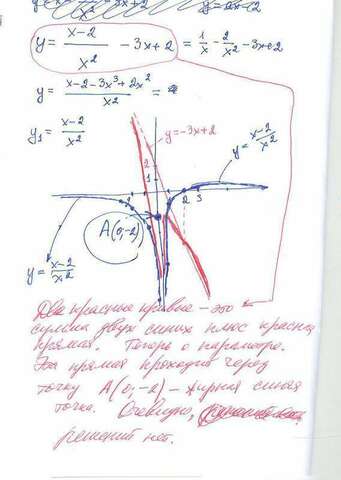 y = (x-2)/x² - 3x+2 = 1/x - 2/x² - 3x+2
y = (x-2-3x³+2x²)/x² =
y₁ = (x-2)/x²
y=-3x+2
y= (x-2)/x²
2
1
2 3
A(0,-2)
y= (x-2)/x²
Две красные кривые - это
сумма двух синих плюс красная
прямая. Теперь о параметре.
Эта прямая проходит через
точку A(0,-2) - жирная синяя
точка. Очевидно,
решений нет.